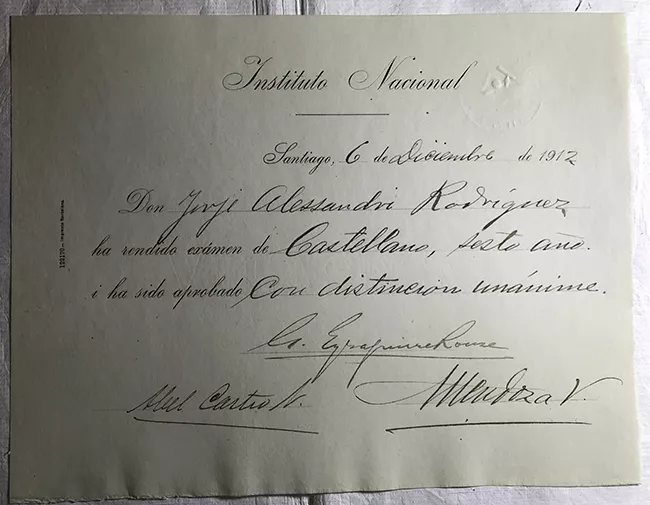 Instituto Nacional
Santiago, 6 de Diciembre de 1912
Don Jorje Alessandri Rodríguez
ha rendido exámen de Castellano, sesto año.
i ha sido aprobado Con distincion unánime.
Abel Castro N. Mendoza V.